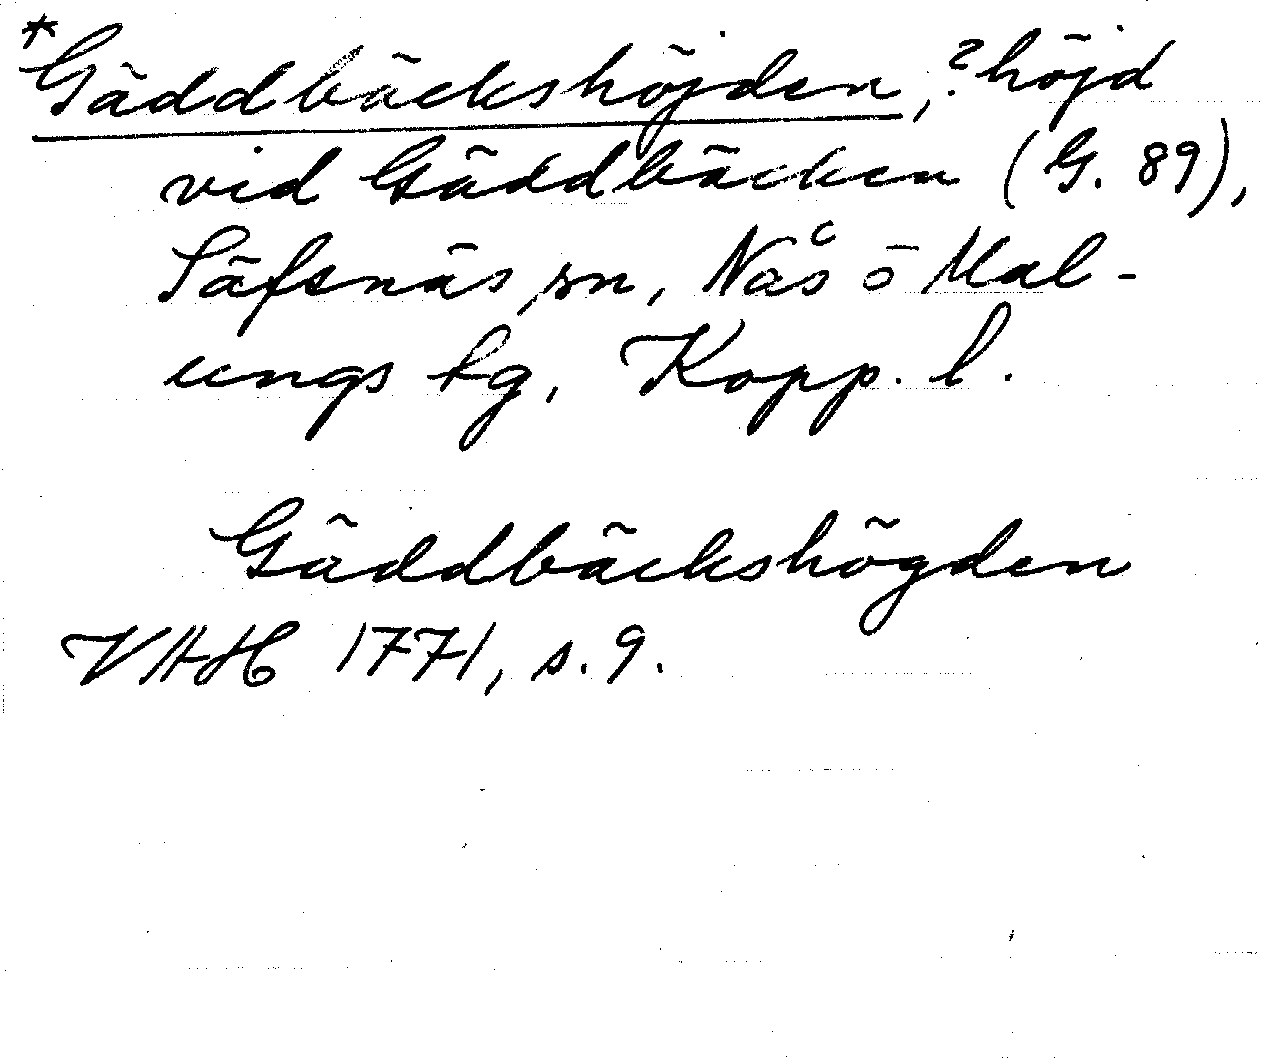 *Gäddbäckshöjden, ?höjd
vid Gäddbäcken (G. 89),
Säfsnäs sn, Nås o Mal-
ungs tg, Kopp. l.
Gäddbäckshögden
VHH 1771, s. 9.